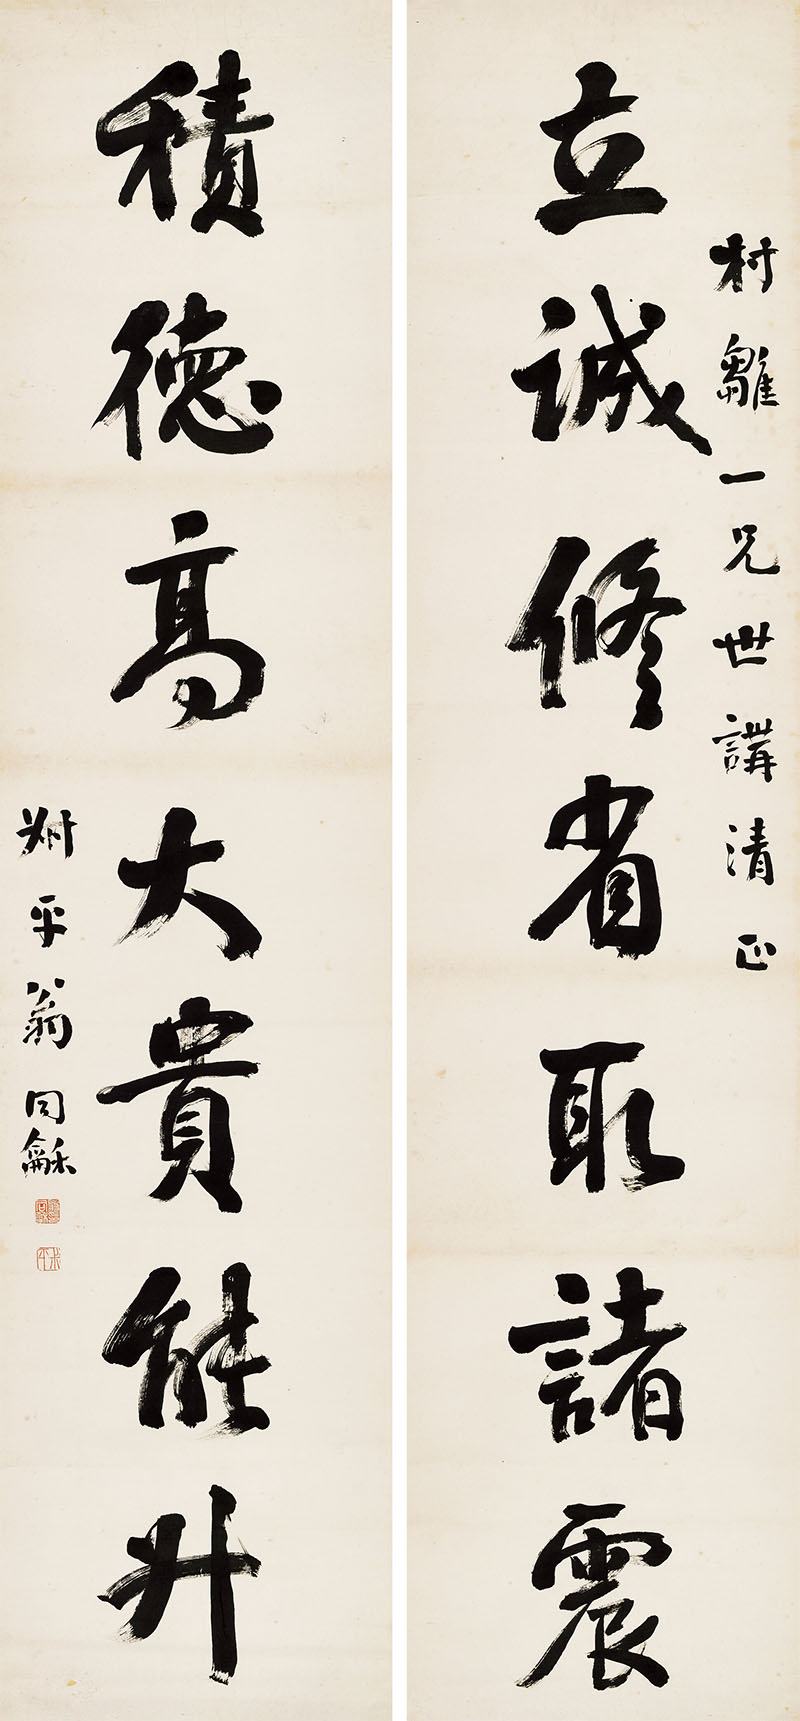 村雛一兄世講清正
立誠修省取諸震
積德高大貴能升
叔平翁同龢